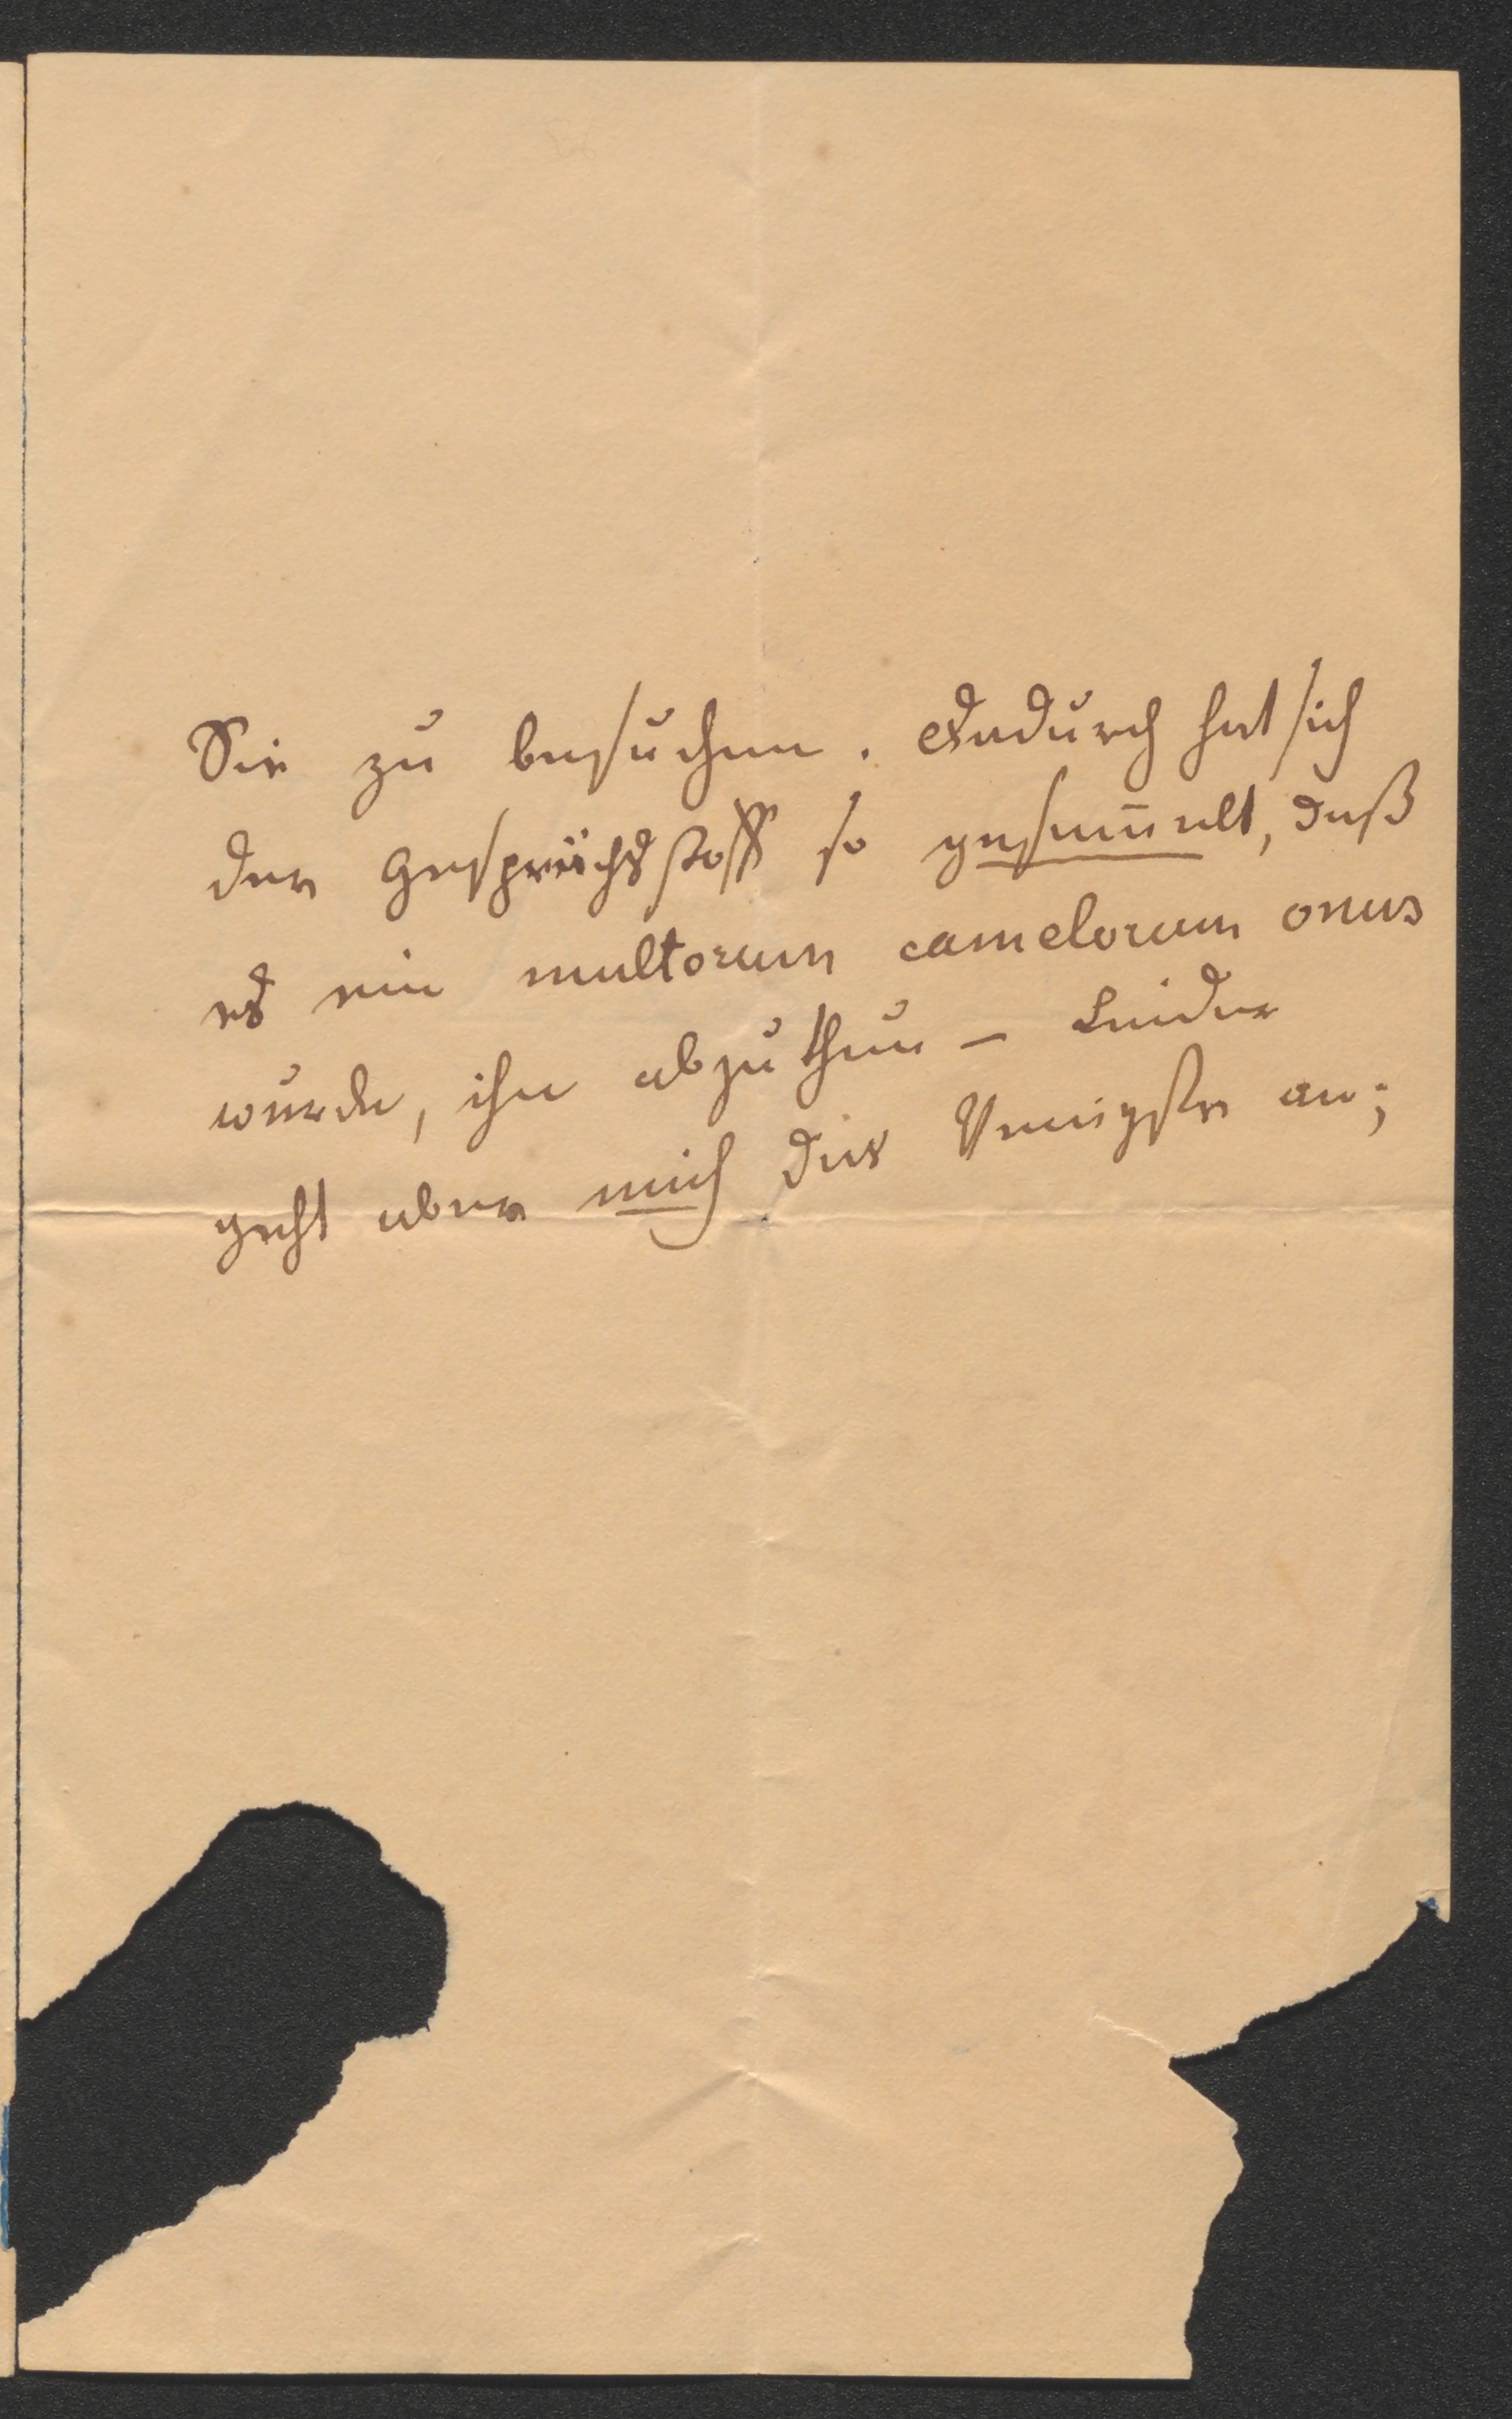 Sie zu besuchen. Dadurch hat sich
der Gesprächsstoff so gesam̅elt, daß
es ein multorum camelorum onus
wurde, ihn abzuthun – Leider
geht aber mich das Wenigste an;